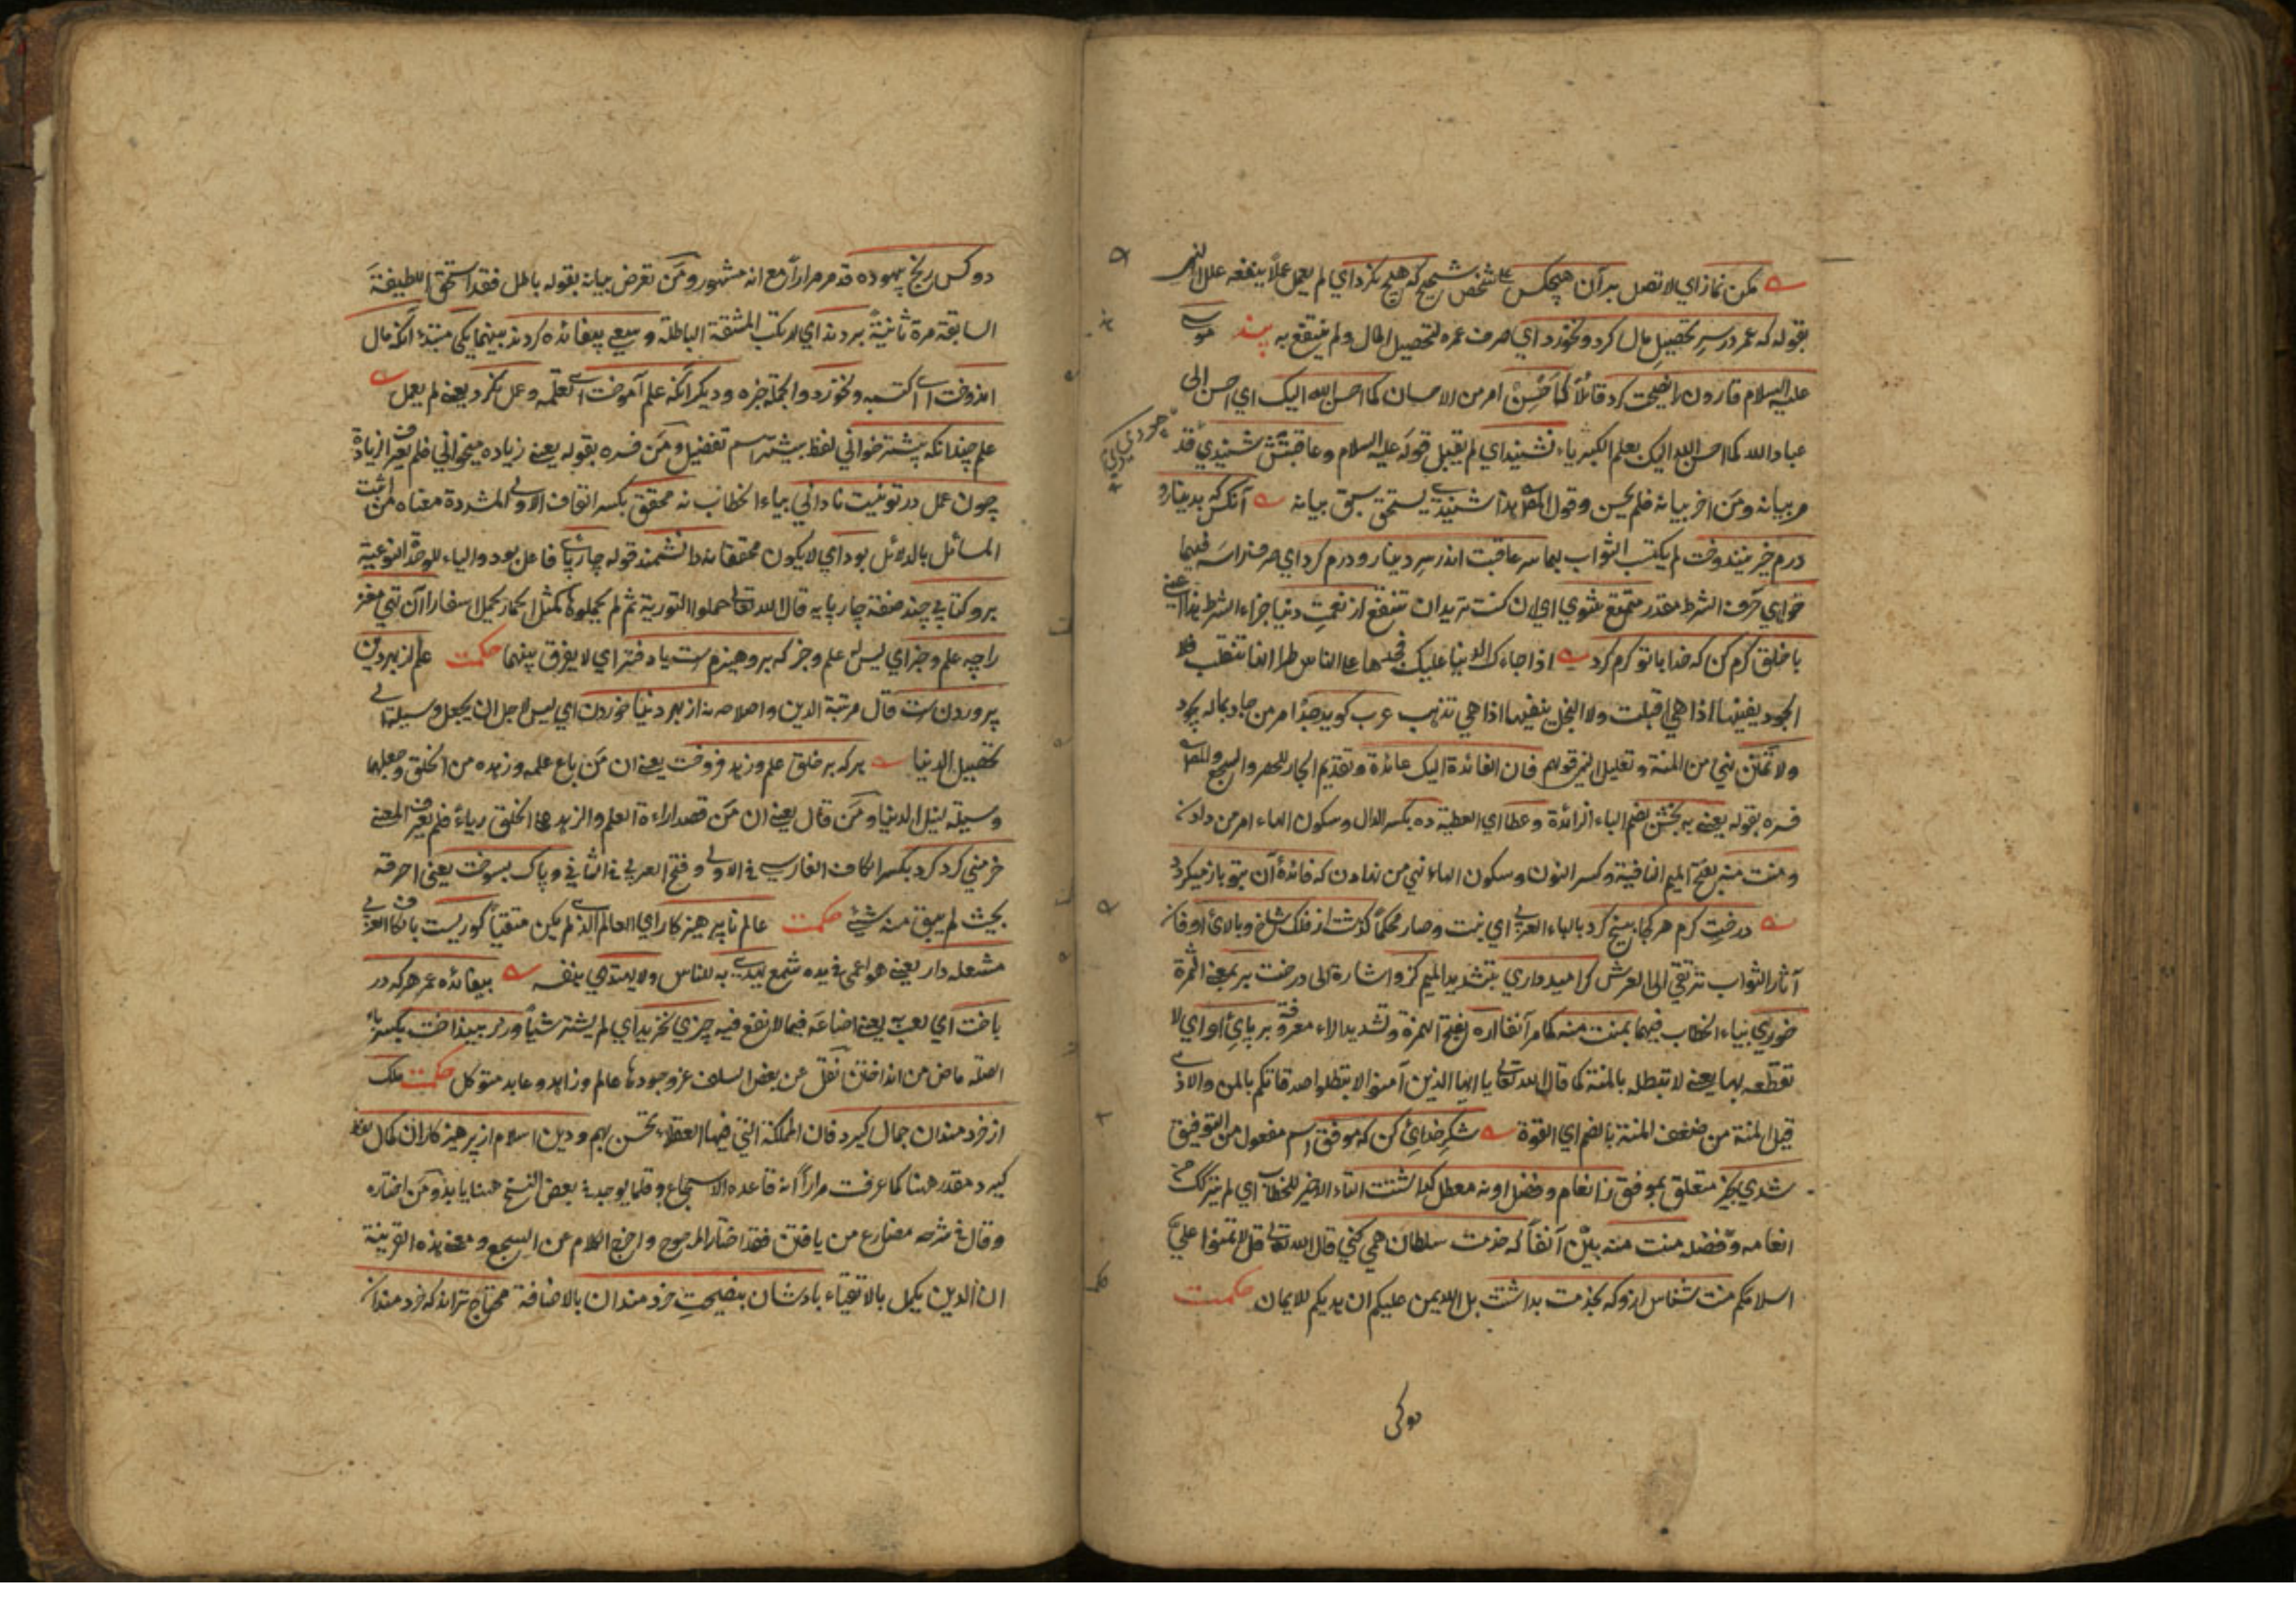 مكن نماز اي لا تصل بر آن هيچكس على شخص شحيح كه هيچ نكرد اي لم يعمل عملاً ينفعه علل النهي
بقوله كه عمر در سر تحصيل مال كرد و نخورد اي صرف عمره لتحصيل المال ولم ينتفع به پند موسى
عليه السلام قارون را نصيحت كرد قائلاً كما اَحْسِنْ امر من الاحسان كما احسن الله اليك اي احسن الى
عباد الله كما احسن الله اليك بعلم الكيمياء نشنيد اي لم يقبل قوله عليه السلام و عاقبتش شنيدي قد
مر بيانه ومَن اخر بيانه فلم يحسن وقول المص بذا شنيدي يستحق سبق بيانه آنكس كه بدينار و
درم خير نيندوخت لم يكتب الثواب بهما سر عاقبت اندر سر دينار و درم كرد اي صرف راسه فيهما
خواهي حرف الشرط مقدر متمتع شوي اي ان كنت تريدان تنتفع از نعمت دنيا جزاء الشرط
با خلق كرم كن كه خدا با تو كرم كرد اذا جاءك الدنيا عليك فجد بها على الناس طرا انها تتقلب فلا
الجود يفنيها اذا هي اقبلت ولا البخل يبقيها اذا هي تذهب عرب گويد جُدْ امر من جاد بماله يجود
ولا تَمْنُنْ نهي من المنة وتعليل النهي قولهم فان الفائدة اليك عائدة وتقديم الجار للحصر والسجع والمص
فسره بقوله يعني به بخش بضم الباء الزائدة وعطا اي العطية ده بكسر الدال وسكون الهاء امر من دادن
ومنت منه بفتح الميم النافية وكسر النون وسكون الهاء نهي من نهادن كه فائدهٔ آن بتو باز ميگردد
درخت كرم هر كجا بيخ كرد بالباء العربي اي نبت وصار محكماً گذشت از فلك شاخ و بالاي او فان
آثار الثواب ترتقي الى العرش گر اميدواري بتشديد الميم كز و اشارة الى درخت بر بمعنى الثمرة
خوري بياء الخطاب فيهما بمنت منه كما مر آنفا اره بفتح الهمزة وتشديد الراء معروفة بر پاي او اي لا
تقطعه بها يعني لا تبطله بالمنة كما قال الله تعالى يا ايها الذين آمنوا لا تبطلوا صدقاتكم بالمن والاذى
قيل المنة من ضعف المنة بالضم اي القوة شكر خداي كن كه موفق اسم مفعول من التوفيق
شدي بخير متعلق بموفق ز انعام و فضل او نه معطل گذاشتت التاء الاخير للخطاب اي لم يتركك من
انعامه وفضله منت منه بيّن آنفاً كه خدمت سلطان همي كني قال الله تعالى قل لا تمنوا علي
اسلامكم منت شناس ازو كه بخدمت بداشتت بل الله يمن عليكم ان هديكم للايمان حكمت
دو كس
دو كس رنج بيهوده قد مر مراراً مع انه مشهور ومَن تعرض بيانه بقوله باطل فقد استحق اللطيفة
السابقة مرة ثانيةً بردند اي ارتكب المشقة الباطلة و سعي بيفائده كردند بينهما يكي مبتداء آنكه مال
اندوخت اي اكتسبه و نخورد والجملة خبره و ديگر آنكه علم آموخت اي تعلمه و عمل نكرد يعني لم يعمل
علم چندانكه بيشتر خواني لفظ بيشتر اسم تفضيل ومَن فسره بقوله يعني زياده ميخواني فلم يعرف الزيادة
چون عمل در تو نيست ناداني بياء الخطاب نه محقق بكسر القاف الاولى المشددة معناه من اثبت
المسائل بالدلائل بود اي لا يكون محققا نه دانشمند قوله چارپائي فاعل بود والياء للوحدة النوعية
برو كتابي چند صفة چارپايه قال الله تعالى حملوا التورية ثم لم يحملوها كمثل الحمار يحمل اسفارا آن تهي مغز
را چه علم و خبر اي ليس له علم وخبر كه برو هيزمست يا دفتر اي لا يفرق بينهما حكمت علم از بهر دين
پروردنست قال مرتبة الدين واصلاحه نه از بهر دنيا خوردن اي ليس لاجل ان يجعل وسيلة الى
تحصيل الدنيا هر كه بر خلق علم و زهد فروخت يعني ان مَن باع علمه وزهده من الخلق وجعلهما
وسيلة لنيل الدنيا ومَن قال يعني ان مَن قصد اراءة العلم والزهد على الخلق رياءً فلم يعرف المعنى
خرمني گرد كرد بكسر الكاف الفارسي في الاولى وفتح العربي في الثاني و پاك بسوخت يعني احرقه
بحيث لم يبق منه شيء حكمت عالم ناپرهيزكار اي العالم الذي لم يكن متقياً كوريست بالكاف العربي
مشعله دار يعني هو اعمى في يده شمع يهدي به للناس ولا يهتدي بنفسه بيفائده عمر هر كه در
باخت اي لعب به يعني اضاعَه فيما لا نفع فيه چيزي نخريد اي لم يشتر شيأً و زر بينداخت بكسر باء
الصلة ماض من انداختن نقل عن بعض السلف عز وجودها عالم و زاهد و عابد متوكل حكمت ملك
از خردمندان جمال گيرد فان المملكة التي فيها العقلاء تحسن بهم و دين اسلام از پرهيزكاران كمال لفظ
گيرد مقدر هنا كما عرفت مراراً انه قاعدة الاسجاع وقلما يوجد في بعض النسخ ههنا يابد ومَن اختاره
وقال في شرحه مضارع من يافتن فقد اختار المرجوح واخرج الكلام عن السجع ومعنى هذه القرينة
ان الدين يكمل بالاتقياء پادشاهان بنصيحتِ خردمندان بالاضافة محتاج ترند كه خردمندان